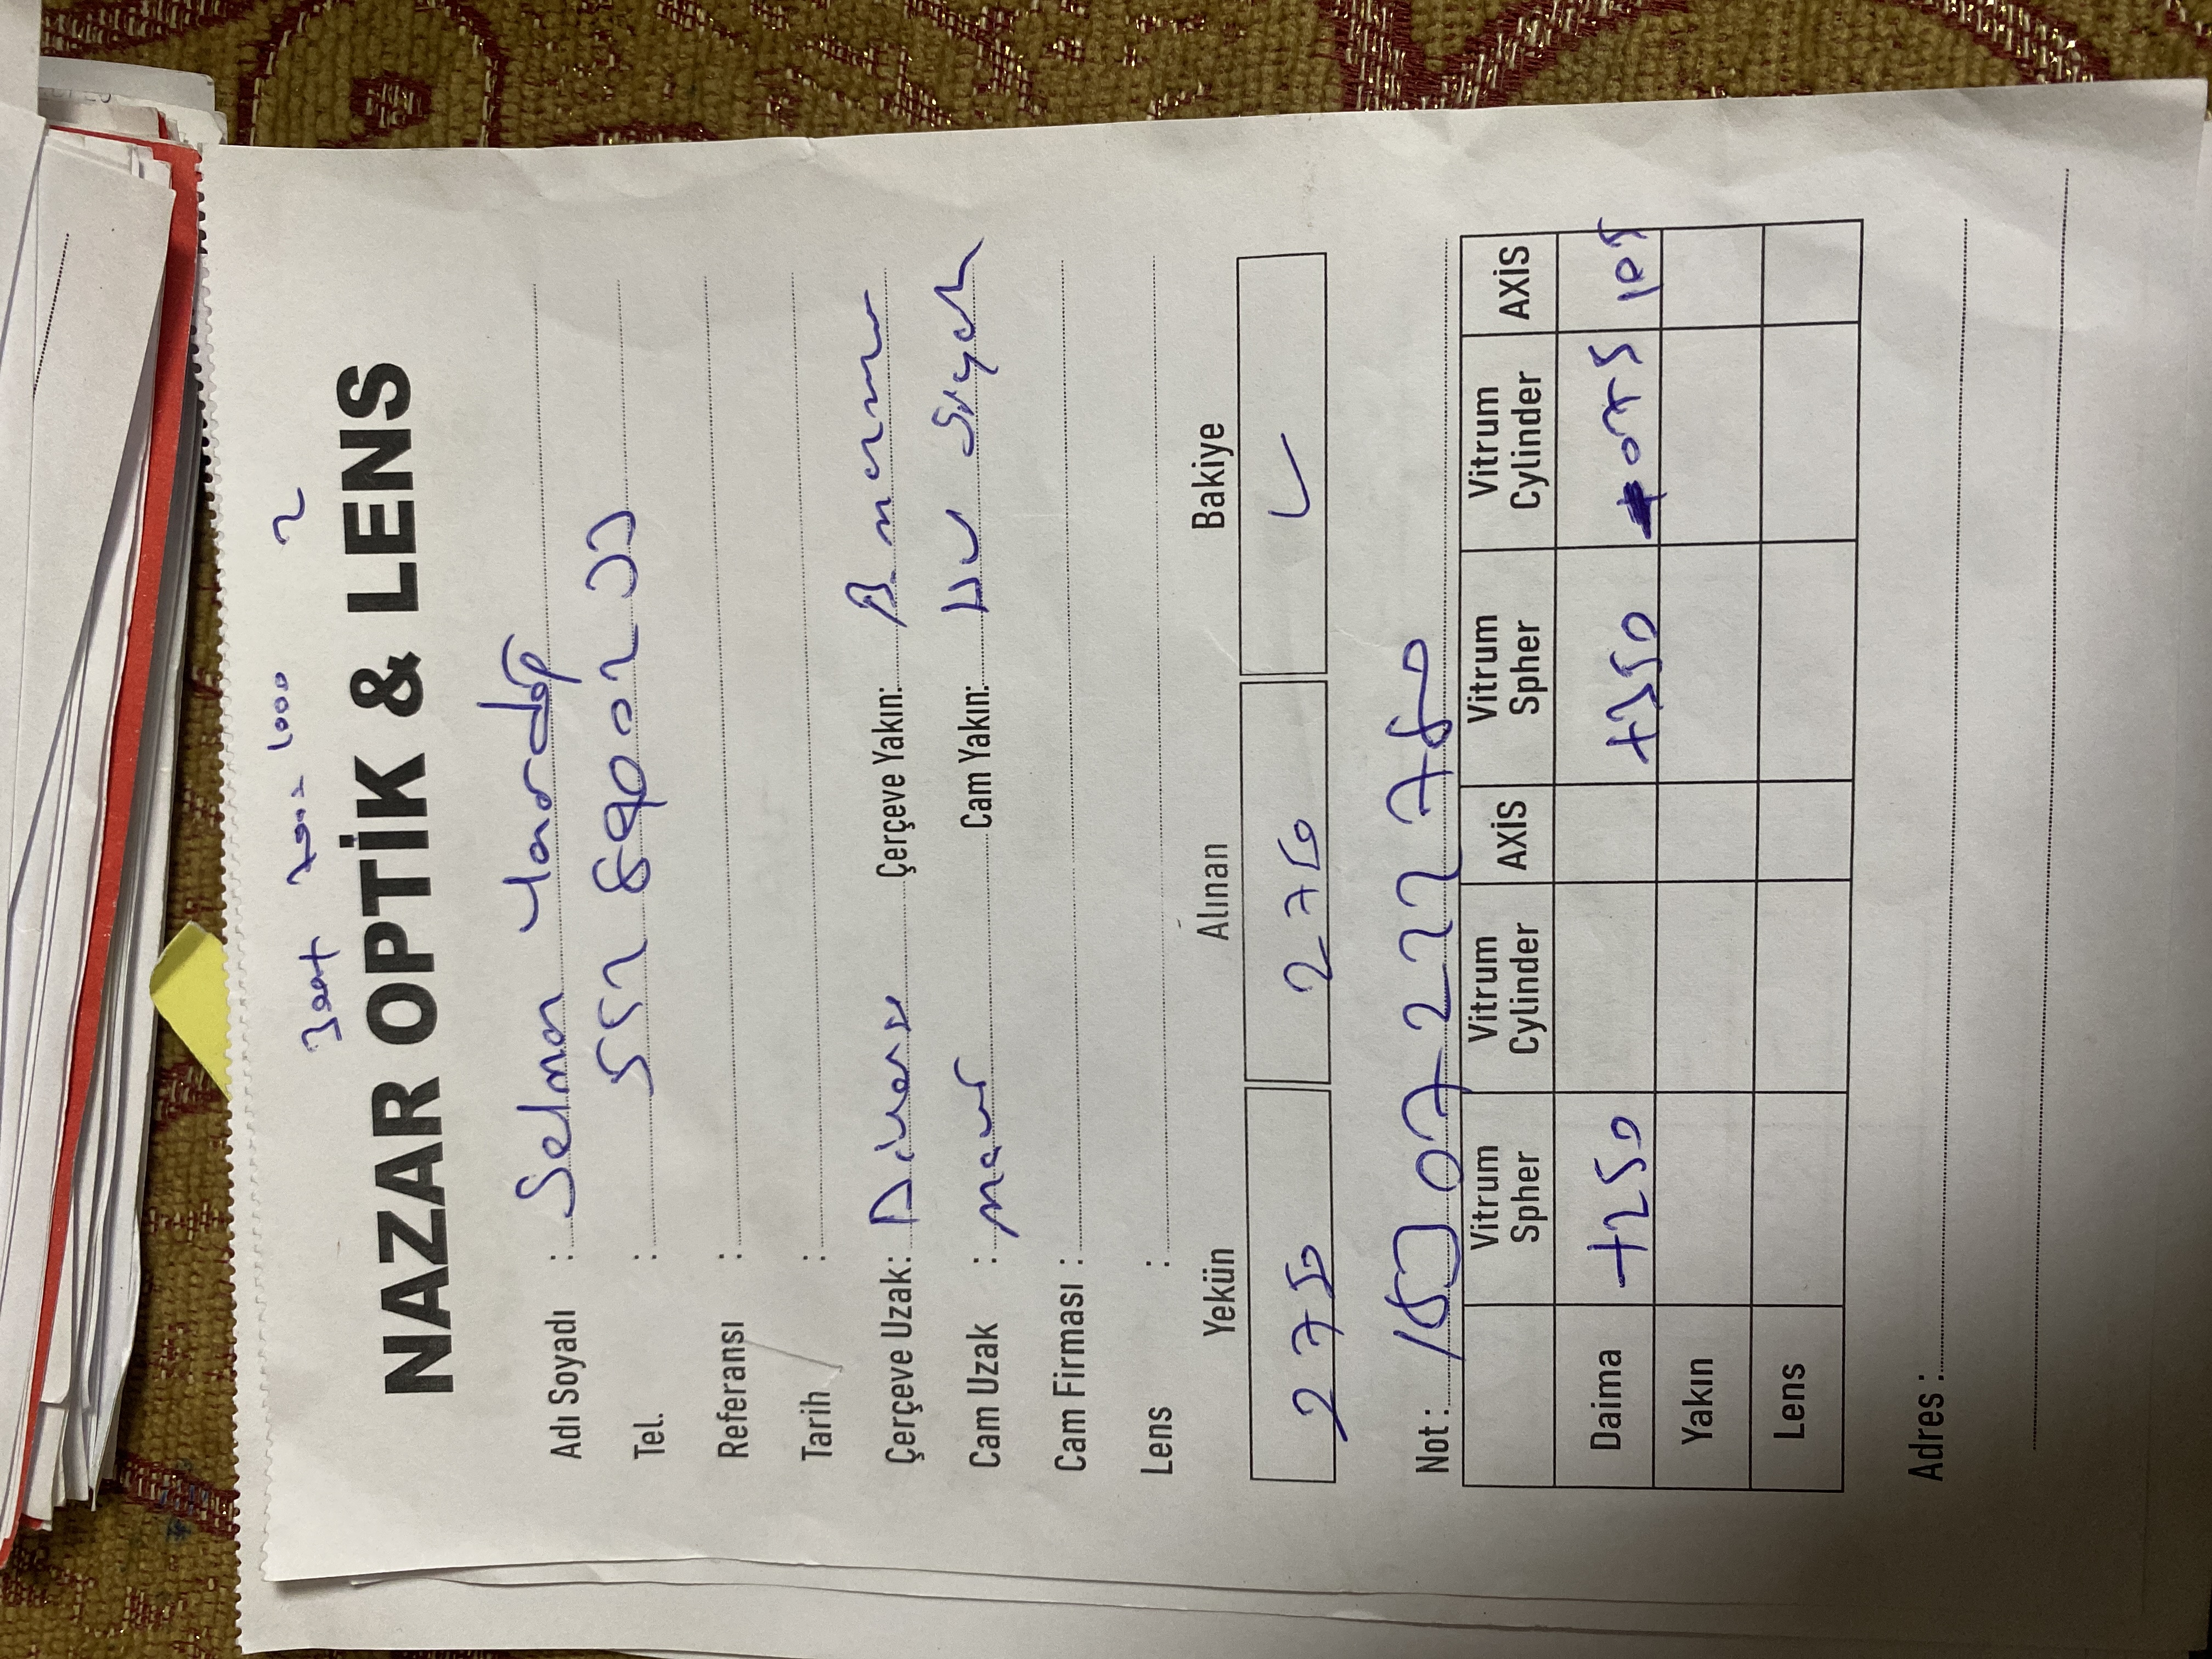 1000 2
NAZAR OPTİK & LENS
Adı Soyadı : Selma
Tel. : 552 890 02 33
Referansı :
Tarih :
Çerçeve Uzak: Çerçeve Yakın:
Cam Uzak : Cam Yakın: Siyah
Cam Firması :
Lens :
Yekün Alınan Bakiye
2750 2750 ✓
Not : 18307222780
Vitrum Spher Vitrum Cylinder AXİS Vitrum Spher Vitrum Cylinder AXİS
Daima +250 +350 075 105
Yakın
Lens
Adres :